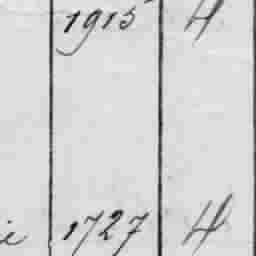 1915 H
1727 H